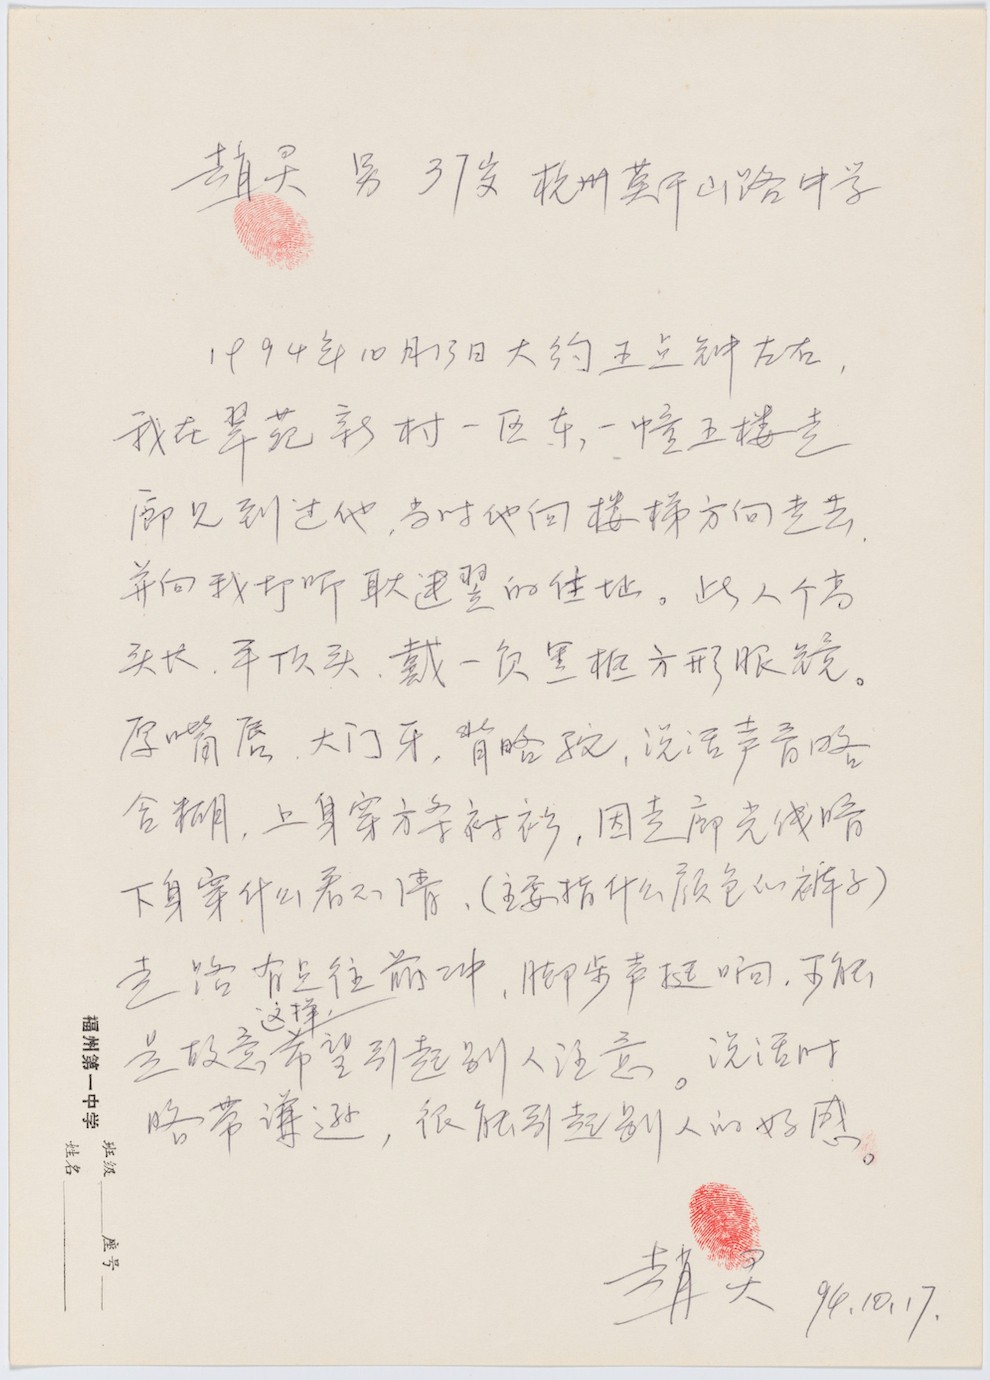 趙灵 男 37岁 杭州莫干山路中学
1994年10月13日大约五点钟左右，
我在翠苑新村一区东一幢五楼走
廊见到过他，当时他向楼梯方向走去，
并向我打听耿建翌的住址。此人个高
头长、平顶头、戴一负黑框方形眼镜。
厚嘴唇、大门牙，背略驼，说话声音略
含糊，上身穿方条衬衫，因走廊光线暗
下身穿什么看不清、（主要指什么颜色的裤子）
走路有点往前冲，脚步声挺响，可能
是故意这样，希望引起别人注意。说话时
略带谦逊，很能引起别人的好感。
趙灵 94.10.17.
福州第一中学
班级 座号
姓名